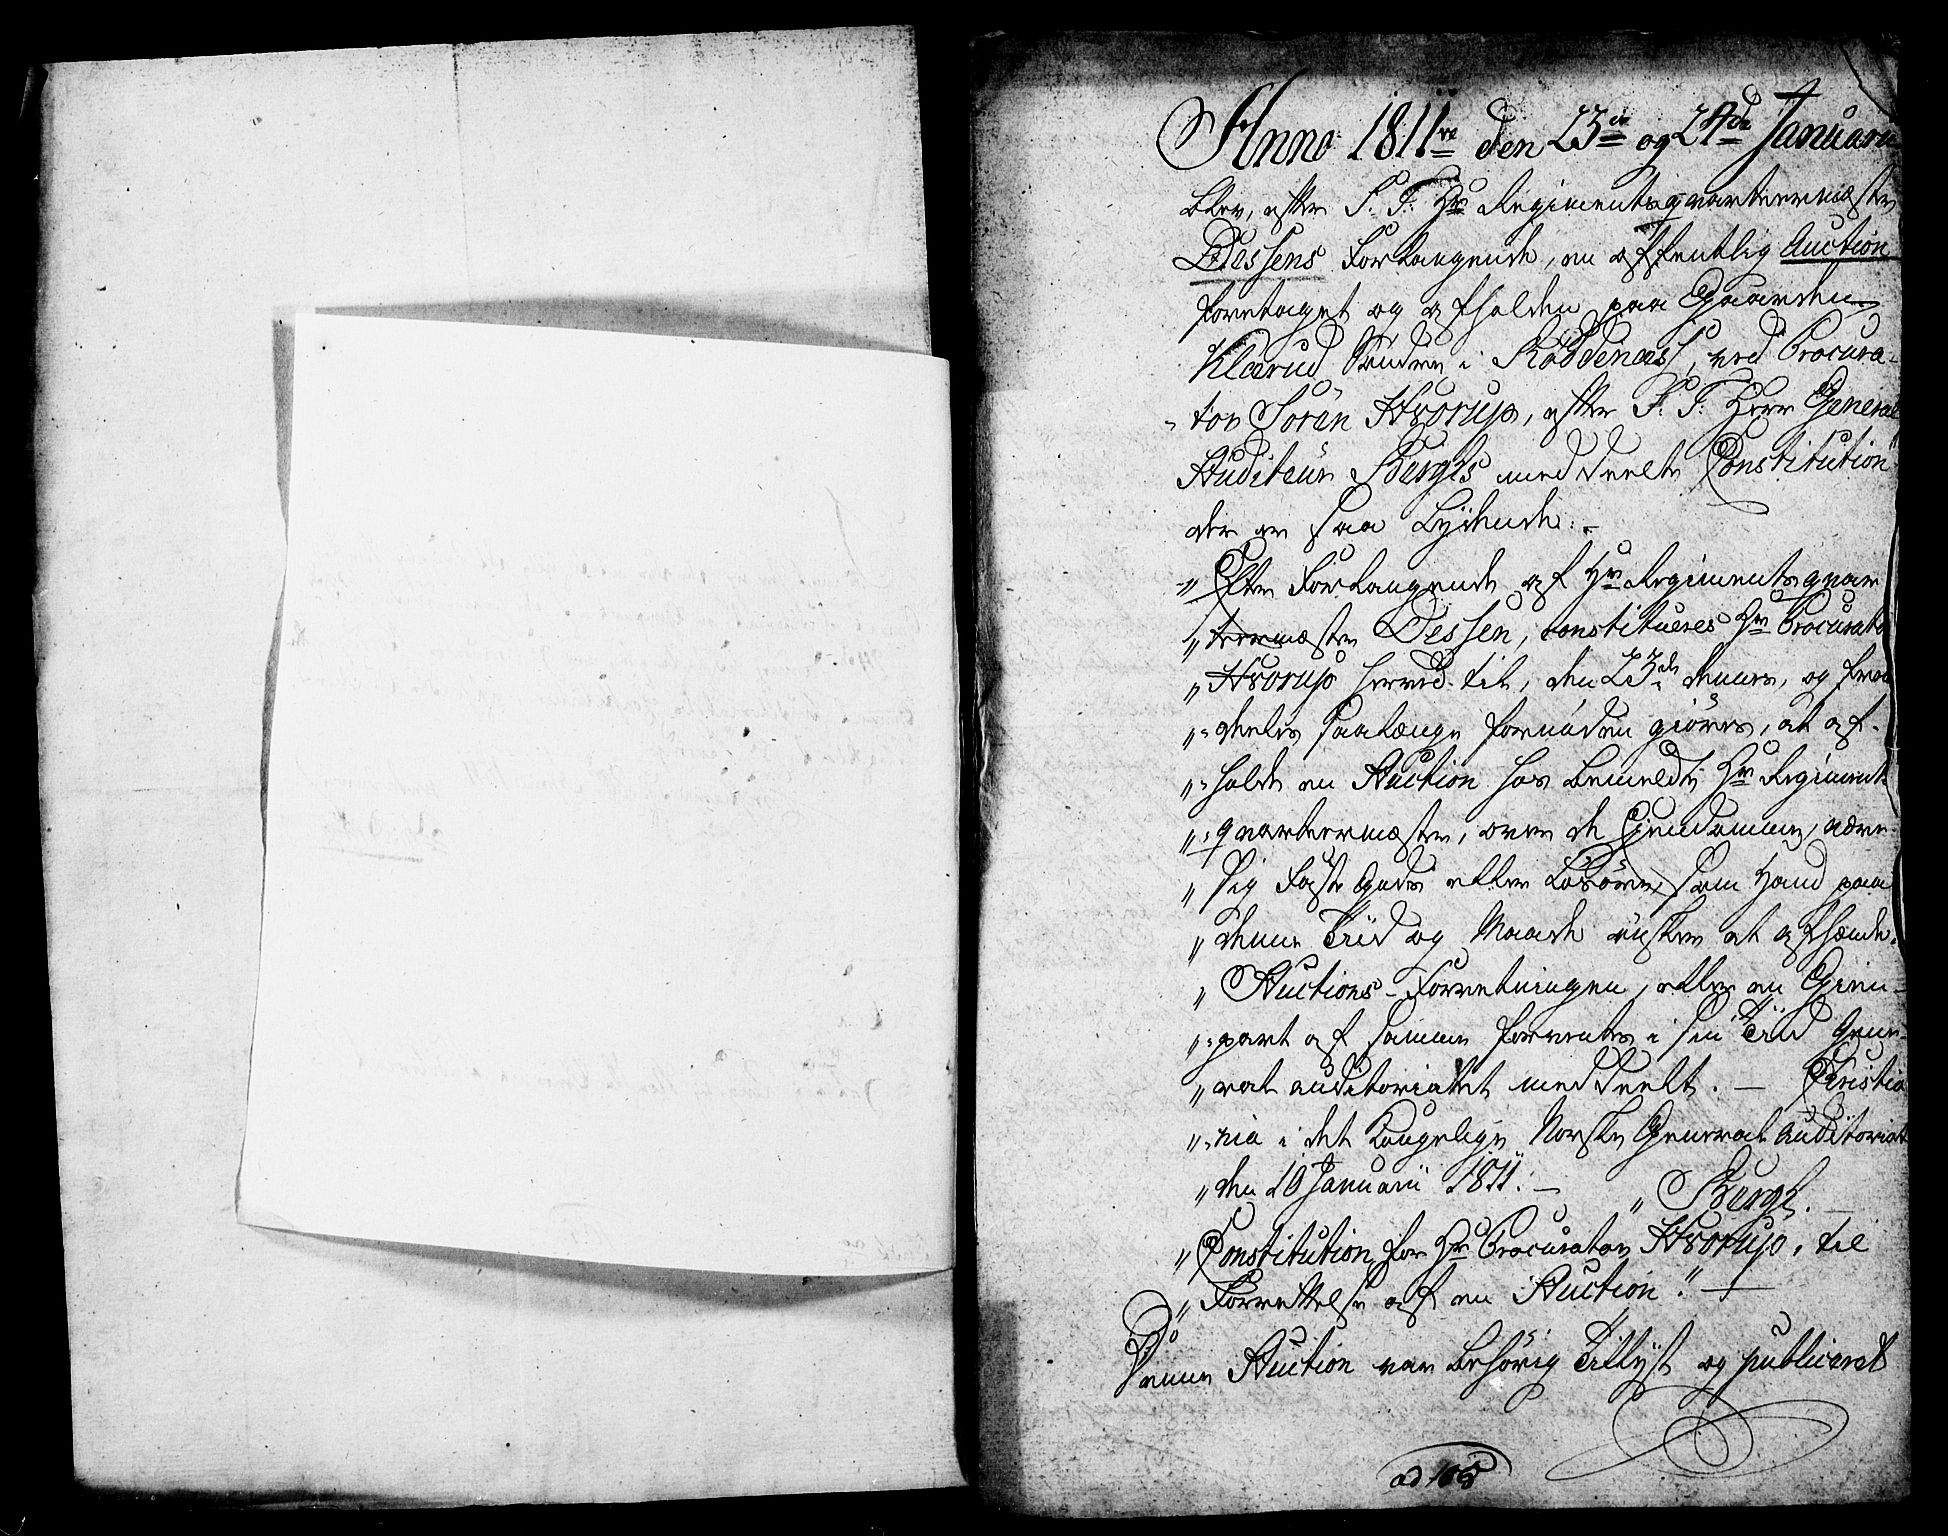 Anno 1811re den 23de og 24de Januarii
blev, efter S. T. Hr Regimentsqvarteermester
Dessens Forlangende, en offentlig Auction
foretaget og afholden paa Gaarden
Klærud Søndre i Røddenæs, ved Procura-
-tor Sörän Hvorup, efter S. T. Herr General
Auditeur Berghs meddeelte Constitution
der er saa Lydende:-
„ Efter Forlangende af Hr Regimentsqvar
„ teermester Dessen, constitueres Hr Procurator
„ Hvorup herved til, den 23de dennes, og frem
„-deeles saalænge fornöden giöres, at af-
„-holde en Auction hos bemeldte Hr Regiments
„-qvarteermester, over de Eiendomme, være
„ sig Faste Gods eller Lösöre, som Hand paa
„ denne Tiid og Maade önsker at afhænde.
„ Auctions-Forretningen, eller en Gien-
„-part af samme forventes i sin Tiid Gene-
„ral auditoriatet meddeelt. — Christia
„-nia i det Kongelige Norske General Auditoriat
„ den 10 Januarii 1811. —
„ Bergh. —
„ Constitution for Hr Procurator Hvorup, til
„ Forrettelse af en Auction." —
Denne Auction var behörig Tillyst og publiceret
ad 105